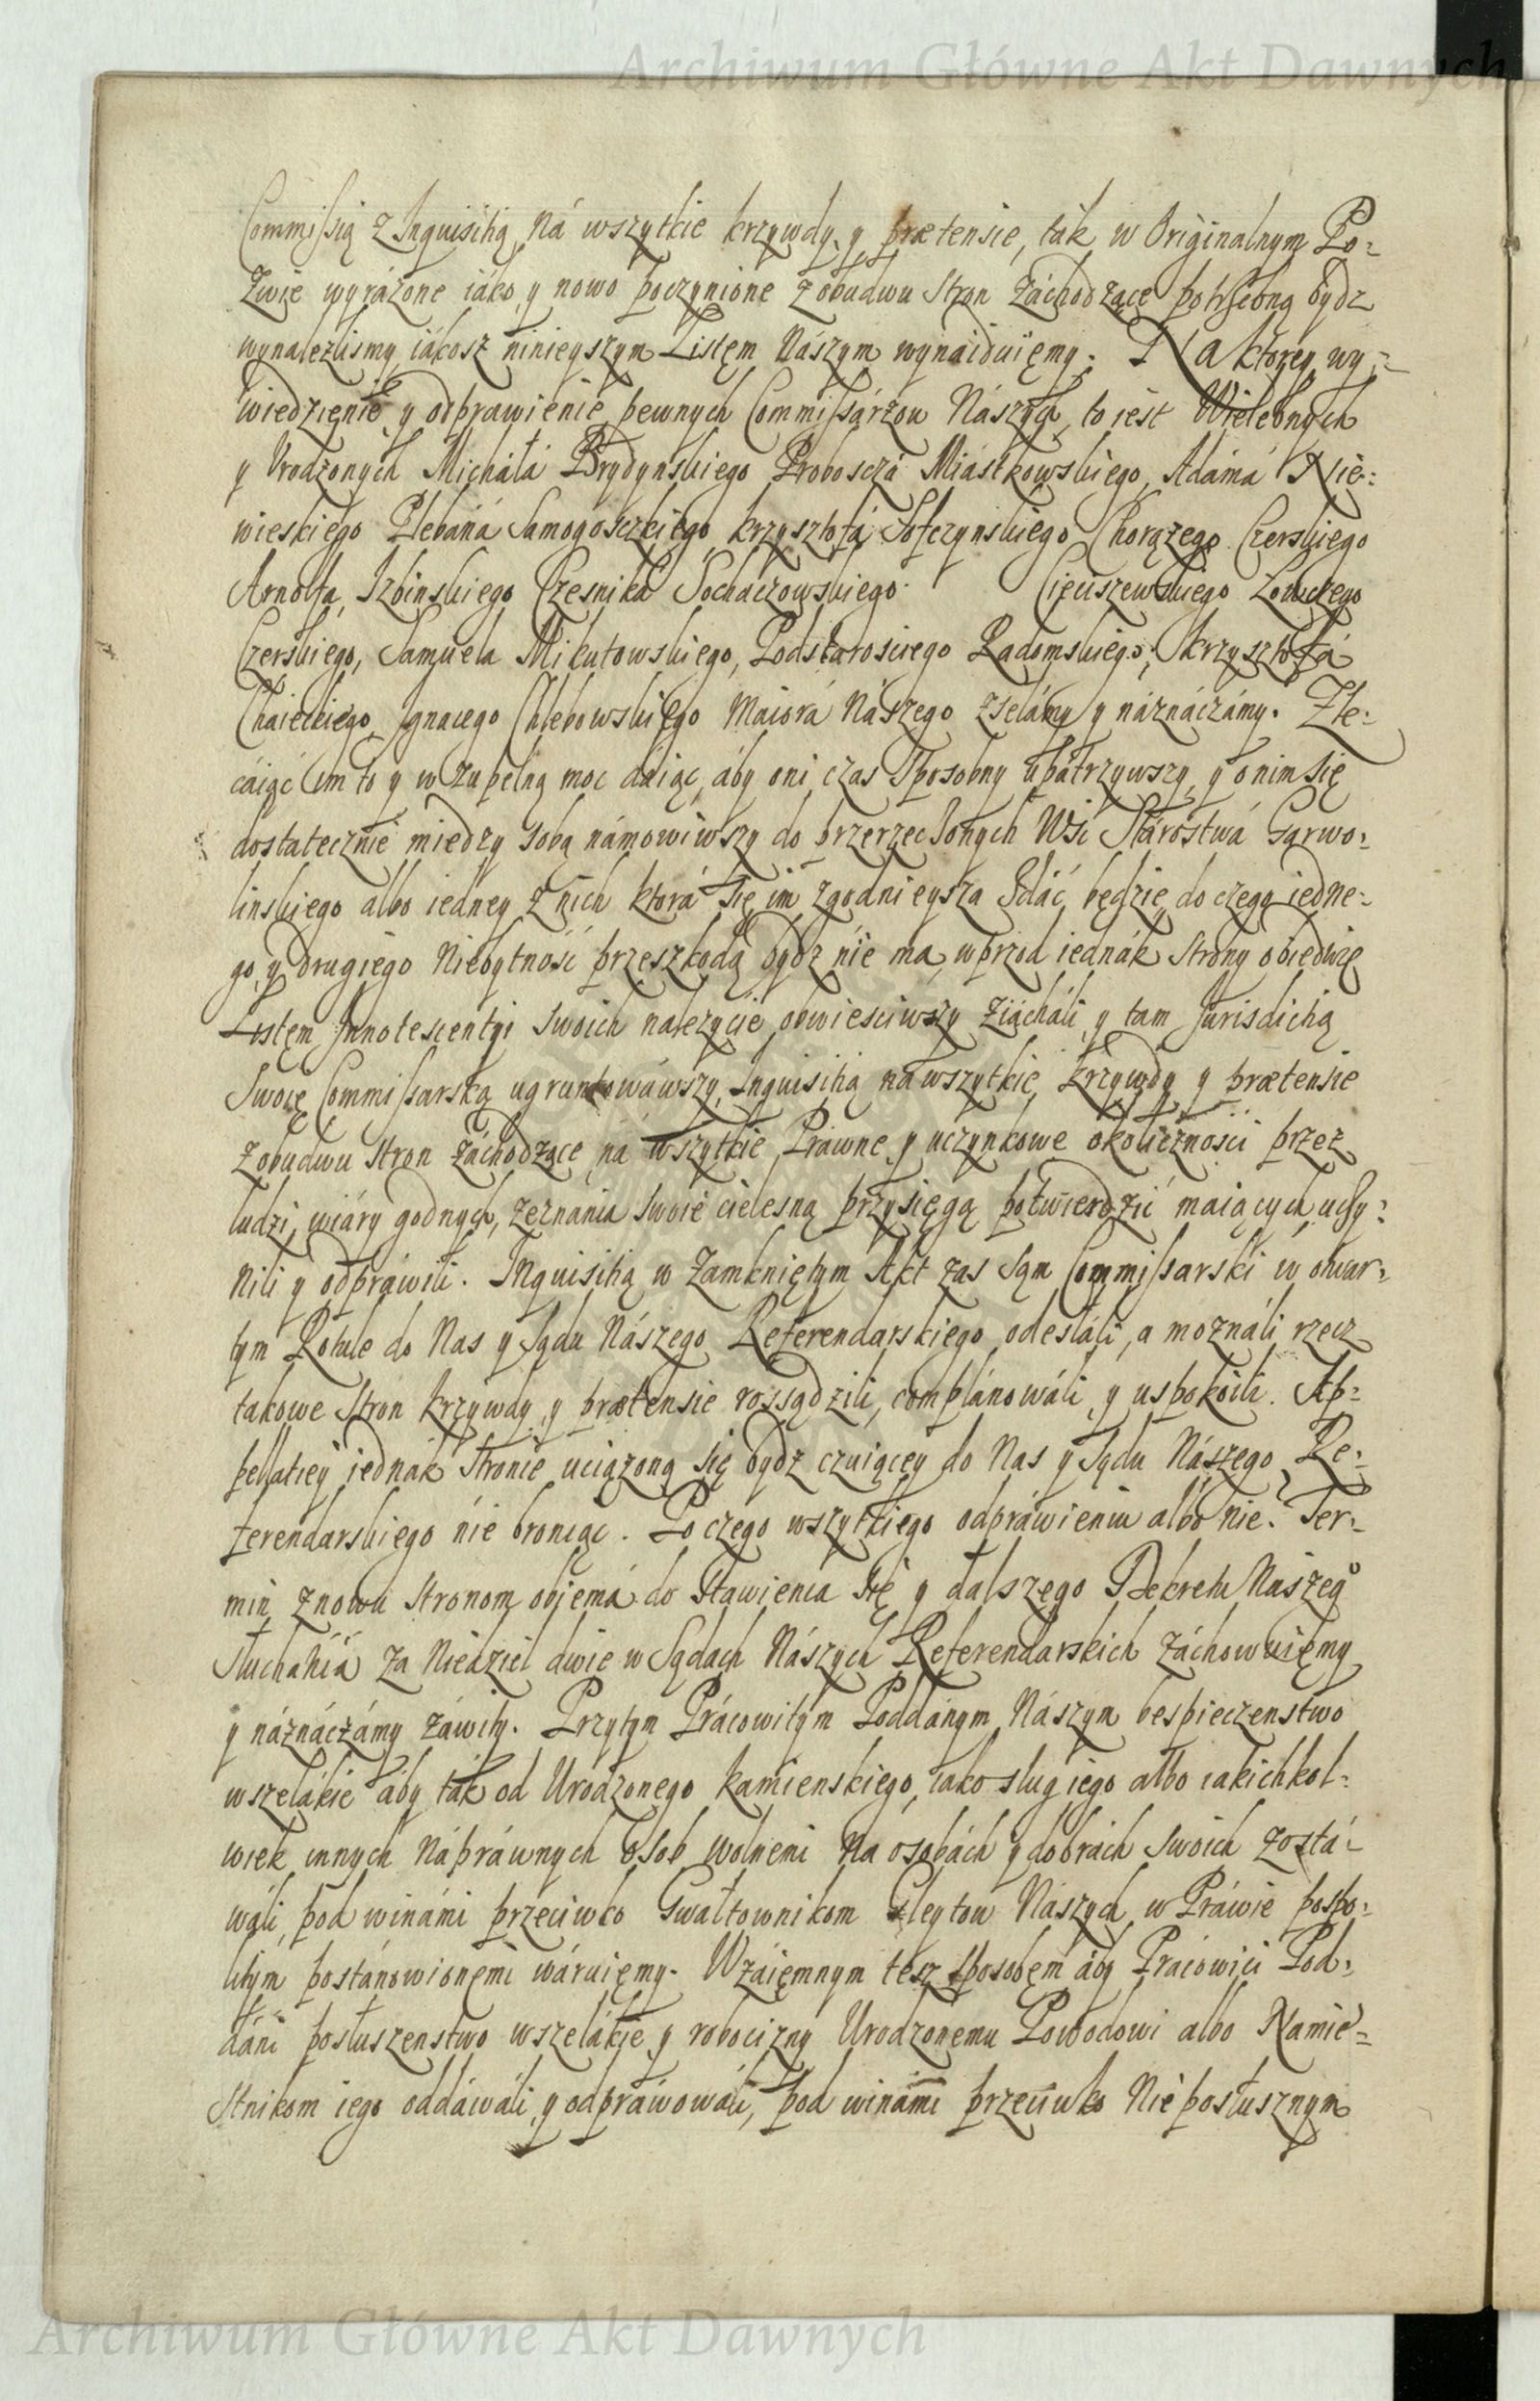 Archiwum Główne Akt Dawnych
Commissią z Inquisitią ná wszytkie krzywdy y prætensie, ták w Originalnym Po=
zwie wyrażone iáko y nowo poczynione z obudwu stron záchodzące potrzebną bydz
wynalezlismy iákosz ninieyszym Listęm Nászym wynaiduięmy. Na ktorey wy=
wiedzięnie y odprawienie pewnych Commissárzow Nászych, to iest Wielebnych
y Urodzonych Micháłá Brydynskiego Proboszczá Miástkowskiego, Adámá Nie=
wieskiego Plebáná Samogosczkiego, krzysztofá Sofczynskiego Chorązego Czerskiego
Arnolfa Izbinskiego Czesniká Sochaczowskiego. Cięciszewskiego Lowczego
Czerskiego, Samuela Mikułowskiego, Podstarosciego Radomskiego, krzysztofá
Chaieckiego, Ignacego Chlebowskiego Maiorá Nászego zsełámy y náznáczámy. Zle=
cáiąc im to y w zupełną moc dáiąc, áby oni czas sposobny upátrzywszy, y o nim się
dostatecznie między sobą námowiwszy do przerzeczonych Wsi Stárostwá Garwo=
linskiego albo iedney z nich ktorá się im zgodnieysza zdáć będzie, do czego iedne=
go y drugiego Niebytność przeszkodą bydz nie ma, wprzod iednák strony obiedwie
Listęm Innotescentyi swoich nalezycie obwiesciwszy ziácháli, y tam Jurisdictią
Swoię Commissarską ugruntowáwszy, Inquisitią na wszytkie krzywdy y prætensie
z obudwu stron záchodzące ná wszytkie Prawne y uczynkowe okoliczności przez
ludzi wiáry godnych, zeznánia swoie cielesną przysięgą potwierdzić maiących uczy=
nili y odpráwili. Inquisitią w Zamkniętym Akt zas Sąm Commissarski w otwar=
tym Rotule do Nas y Sądu Nászego Referendarskiego odesłáli, a moználi rzecz
takowe stron krzywdy y prætensie rossądzili, complánowáli y uspokoili. Ap=
pellatiey iednák stronie uciązoną się bydz czuiącey do Nas y Sądu Nászego Re=
ferendarskiego nie broniąc. Po czego wszytkiego odpráwieniu albo nie. Ter=
min znowu stronom obiemá do stawienia się y dalszego Dekretu Naszego
słuchánia za Niedziel dwie w Sądach Nászych Referendarskich záchowuięmy
y náznáczámy záwity. Przytym Prácowitym Poddánym Nászym bespieczenstwo
wszelákie áby ták od Urodzonego Kamienskiego, iako sług iego albo iakichkol=
wiek innych nápráwnych osob wolnemi na osobách y dobrách swoich zostá=
wáli, pod winámi przeciwko Gwałtownikom Gleytow Nászych w Práwie pospo=
litym postánowionęmi wáruięmy. Wzáięmnym tesz sposobęm áby Prácowici Pod=
dáni posłuszenstwo wszelákie y robocizny Urodzonemu Powodowi albo Namie=
stnikom iego oddáwáli, y odpráwowáli, pod winámi przeciwko Nie posłusznym
Archiwum Główne Akt Dawnych